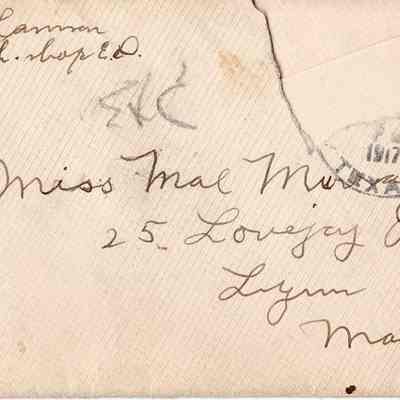 Lannon
h. shop E.D.
1917
TEXA
Miss Mae Mur
25 Lovejoy
Lynn
Ma